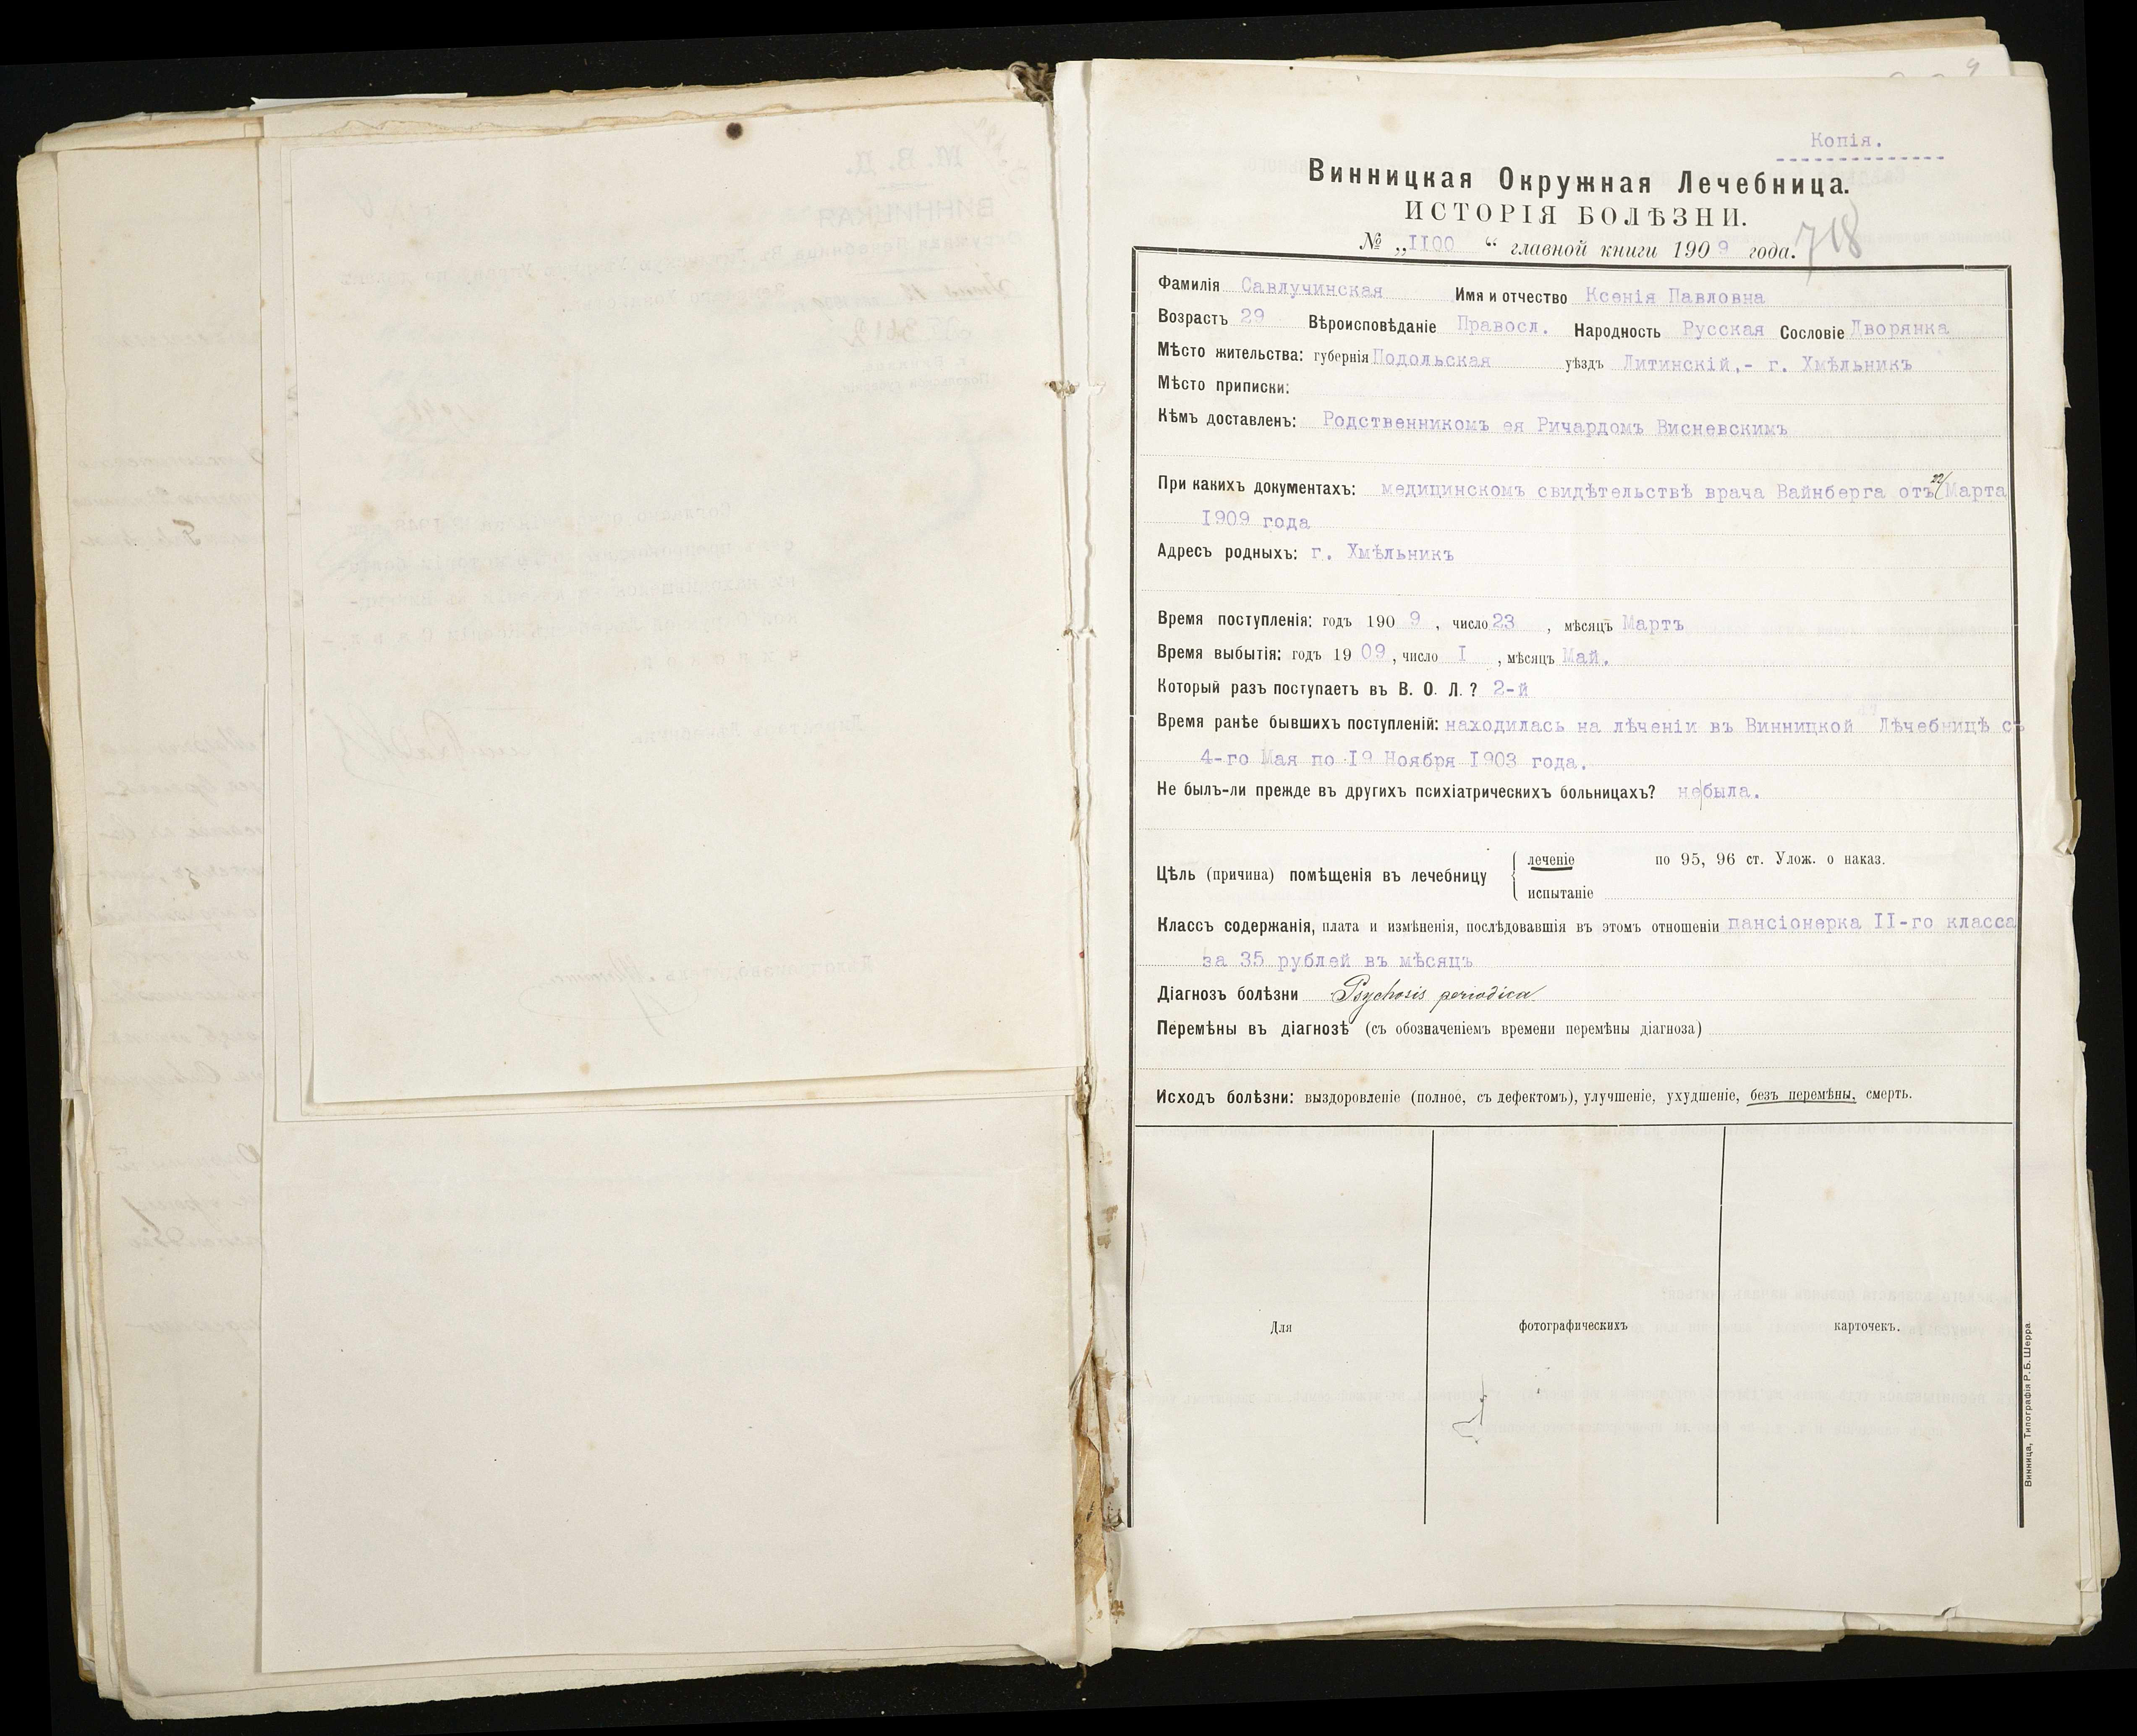 Копія.
Винницкая Окружная Лечебница.
ИСТОРІЯ БОЛѢЗНИ.
№ „1100 “ главной книги 1909 года. 718
Фамилія Савлучинская Имя и отчество Ксенія Павловна
Возрастъ 29 Вѣроисповѣданіе Правосл. Народность Русская Сословіе Дворянка
Мѣсто жительства: губернія Подольская уѣздъ Литинскій,- г. Хмѣльникъ
Мѣсто приписки:
Кѣмъ доставленъ: Родственникомъ ея Ричардомъ Висневскимъ
При какихъ документахъ: медицинскомъ свидѣтельствѣ врача Вайнберга отъ 22/Марта
1909 года
Адресъ родныхъ: г. Хмѣльникъ
Время поступленія: годъ 1909, число 23, мѣсяцъ Мартъ
Время выбытія: годъ 1909, число I, мѣсяцъ Май.
Который разъ поступаетъ въ В. О. Л.? 2-й
Время ранѣе бывшихъ поступленій: находилась на лѣченіи въ Винницкой Лѣчебницѣ съ
4-го Мая по 19 Ноября 1903 года.
Не былъ-ли прежде въ другихъ психіатрическихъ больницахъ? не была.
Цѣль (причина) помѣщенія въ лечебницу { леченіе по 95, 96 ст. Улож. о наказ.
испытаніе
Классъ содержанія, плата и измѣненія, послѣдовавшія въ этомъ отношеніи пансіонерка II-го класса
за 35 рублей въ мѣсяцъ
Діагнозъ болѣзни Psychosis periodica
Перемѣны въ діагнозѣ (съ обозначеніемъ времени перемѣны діагноза)
Исходъ болѣзни: выздоровленіе (полное, съ дефектомъ), улучшеніе, ухудшеніе, безъ перемѣны, смерть.
Для фотографическихъ карточекъ.
Винница, Типографія Р. Б. Шерра